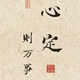 心定
则万事